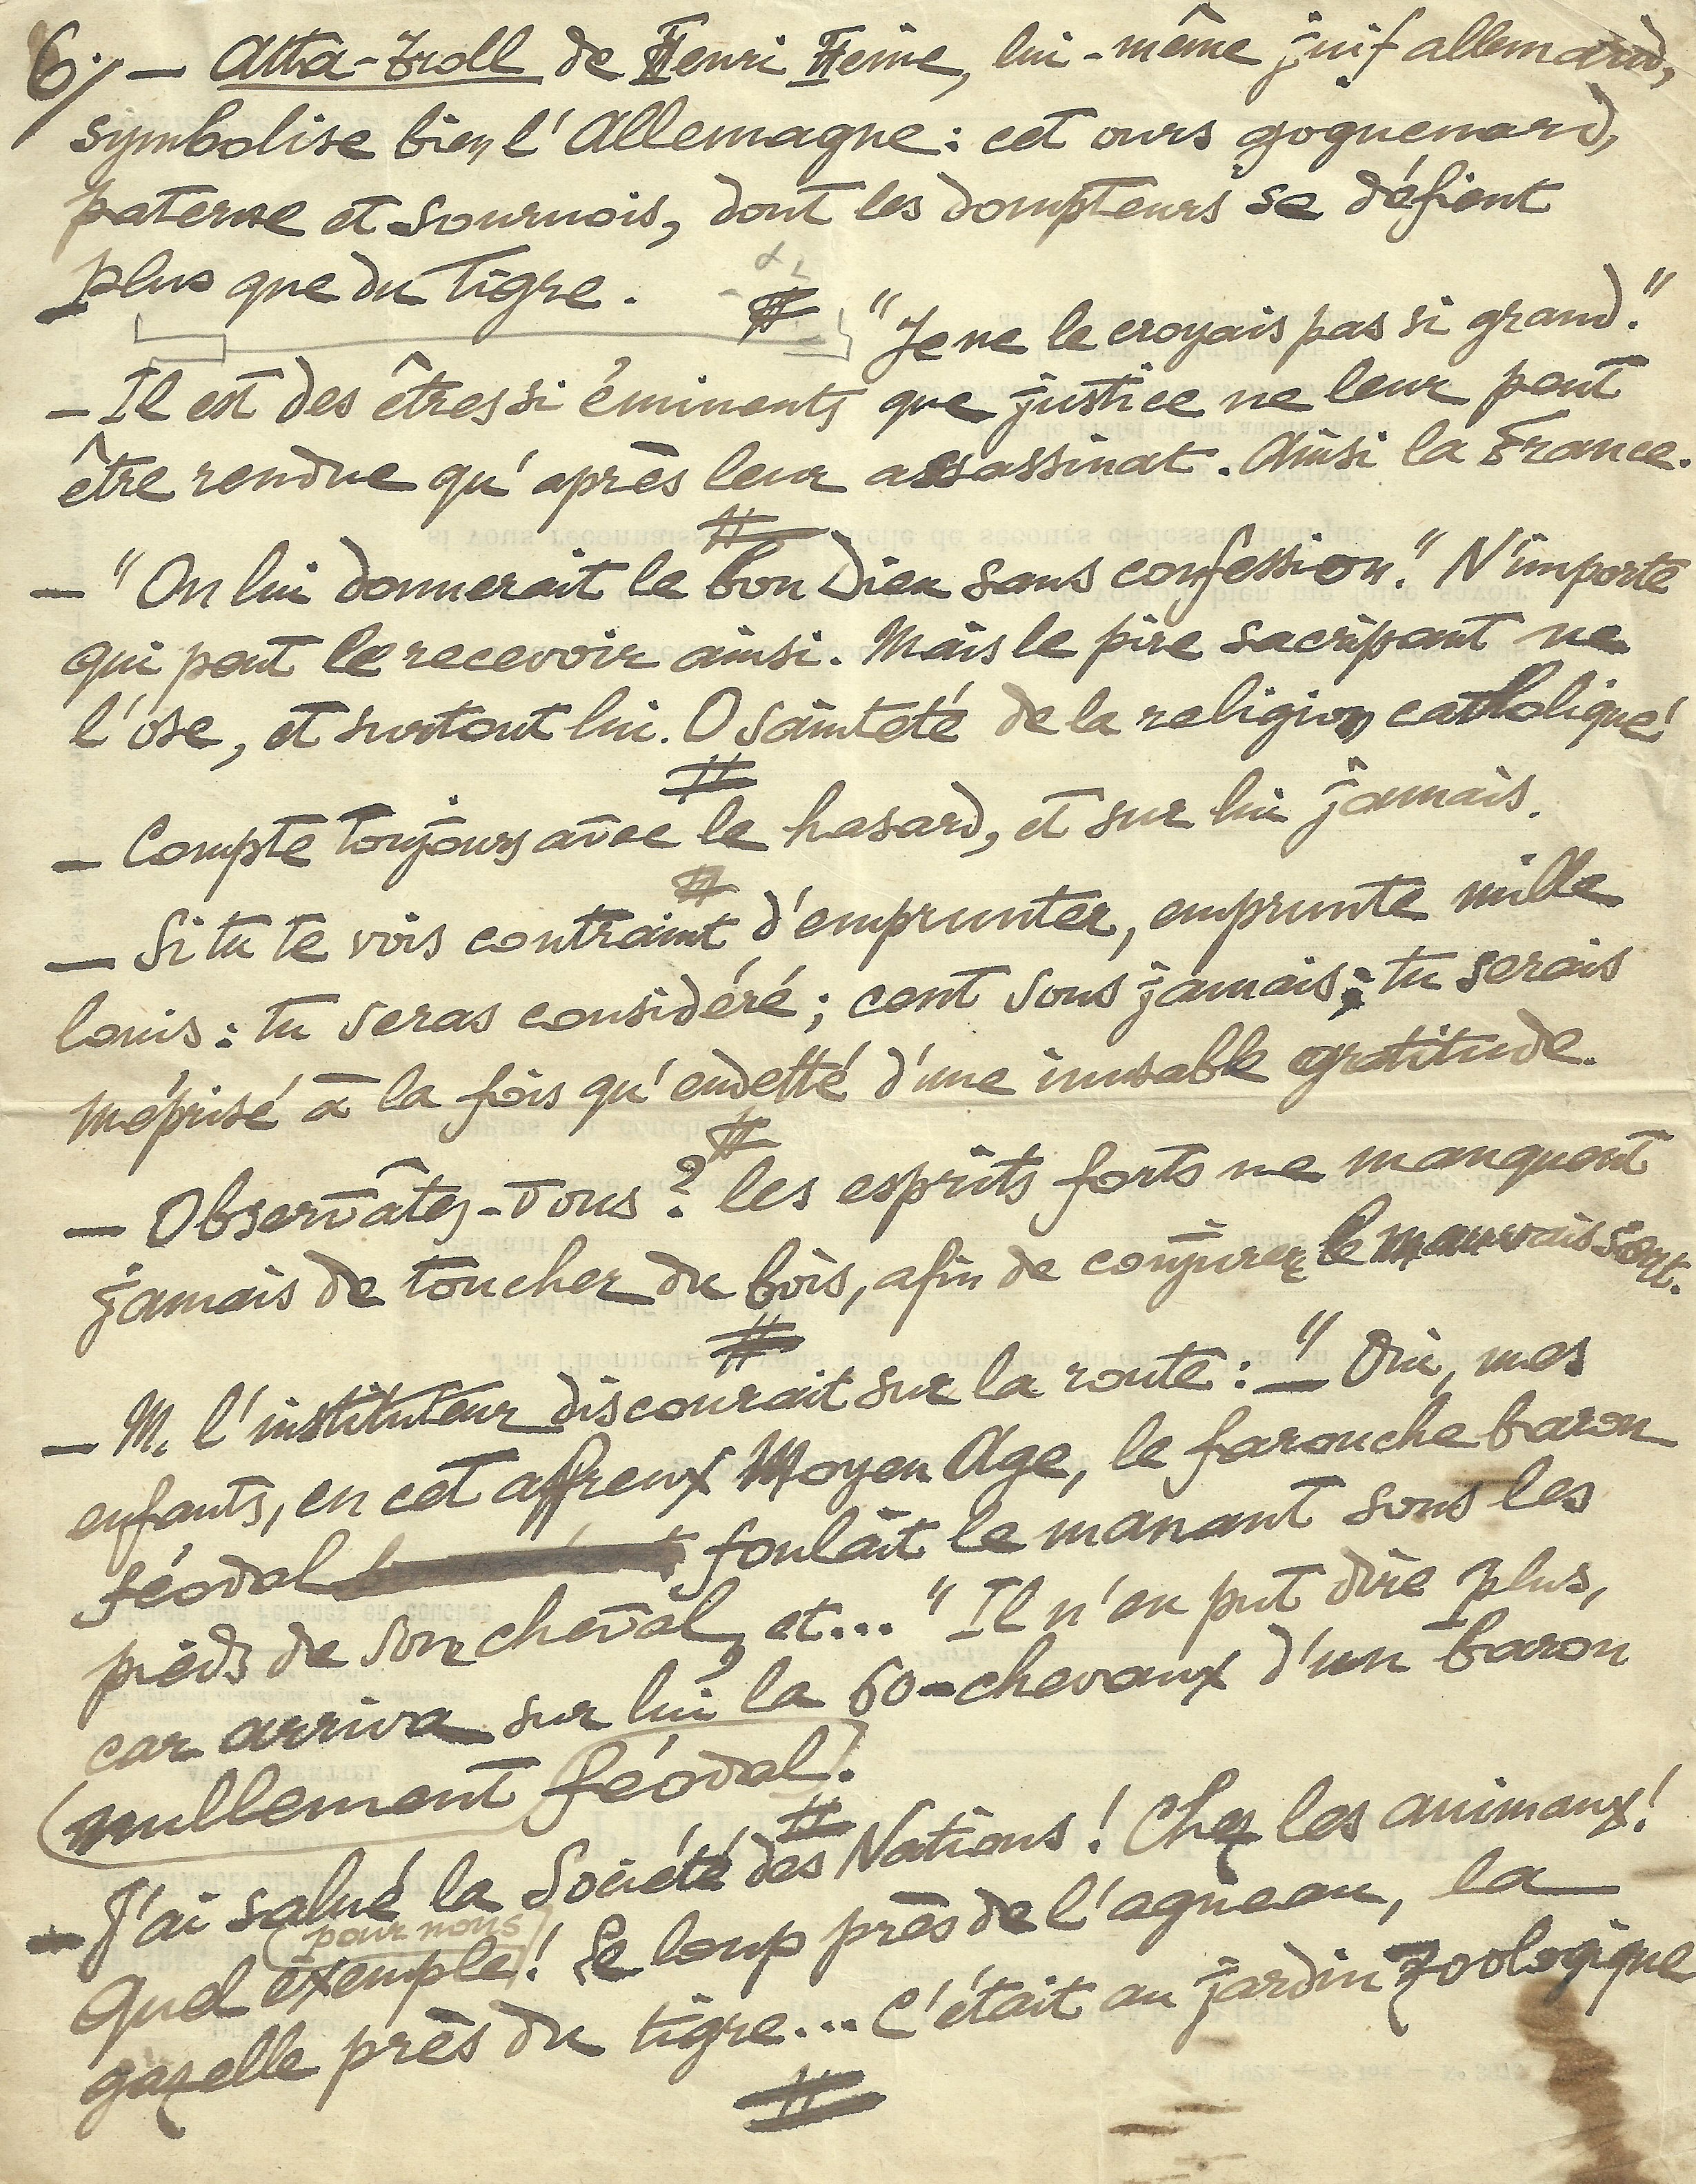 6/ — Atta-Troll de Henri Heine, lui-même juif allemand,
symbolise bien l'Allemagne : cet ours goguenard,
paterne et sournois, dont les dompteurs se défient
plus que du tigre.
#
"Je ne le croyais pas si grand."
— Il est des êtres si éminents que justice ne leur peut
être rendue qu'après leur assassinat. Ainsi la France.
#
— "On lui donnerait le bon Dieu sans confession." N'importe
qui peut le recevoir ainsi. Mais le pire sacripant ne
l'ose, et surtout lui. O sainteté de la religion catholique!
#
— Compte toujours avec le hasard, et sur lui jamais.
#
— Si tu te vois contraint d'emprunter, emprunte mille
louis : tu seras considéré ; cent sous jamais ; tu serais
méprisé à la fois qu'endetté d'une inusable gratitude.
#
— Observâtes-vous ? les esprits forts ne manquent
jamais de toucher du bois, afin de conjurer le mauvais sort.
#
— M. l'instituteur discourait sur la route : — " Oui, mes
enfants, en cet affreux Moyen Age, le farouche baron
féodal foulait le manant sous les
pieds de son cheval, et... " Il n'en put dire plus,
car arriva sur lui la 60-chevaux d'un baron
nullement féodal.
#
— J'ai salué la Société des Nations ! Chez les animaux !
pour nous
Quel exemple ! Le loup près de l'agneau, la
gazelle près du tigre... C'était au jardin zoologique
#